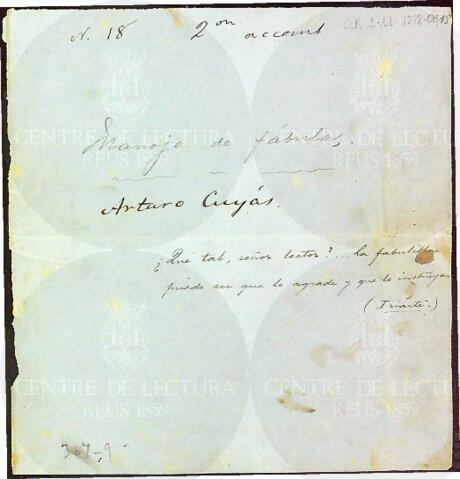 N. 18 2on accent
Manojo de fábulas.
Arturo Cuyás.
¿Qué tal, señor lector?... la fabulilla
puede ser que le agrade y que le instruya.
(Iriarte.)
307-9
CENTRE DE LECTURA
REUS 1859
CENTRE DE LECTURA
REUS 1859
CENTRE DE LECTURA
REUS 1859
CENTRE DE LECTURA
REUS 1859